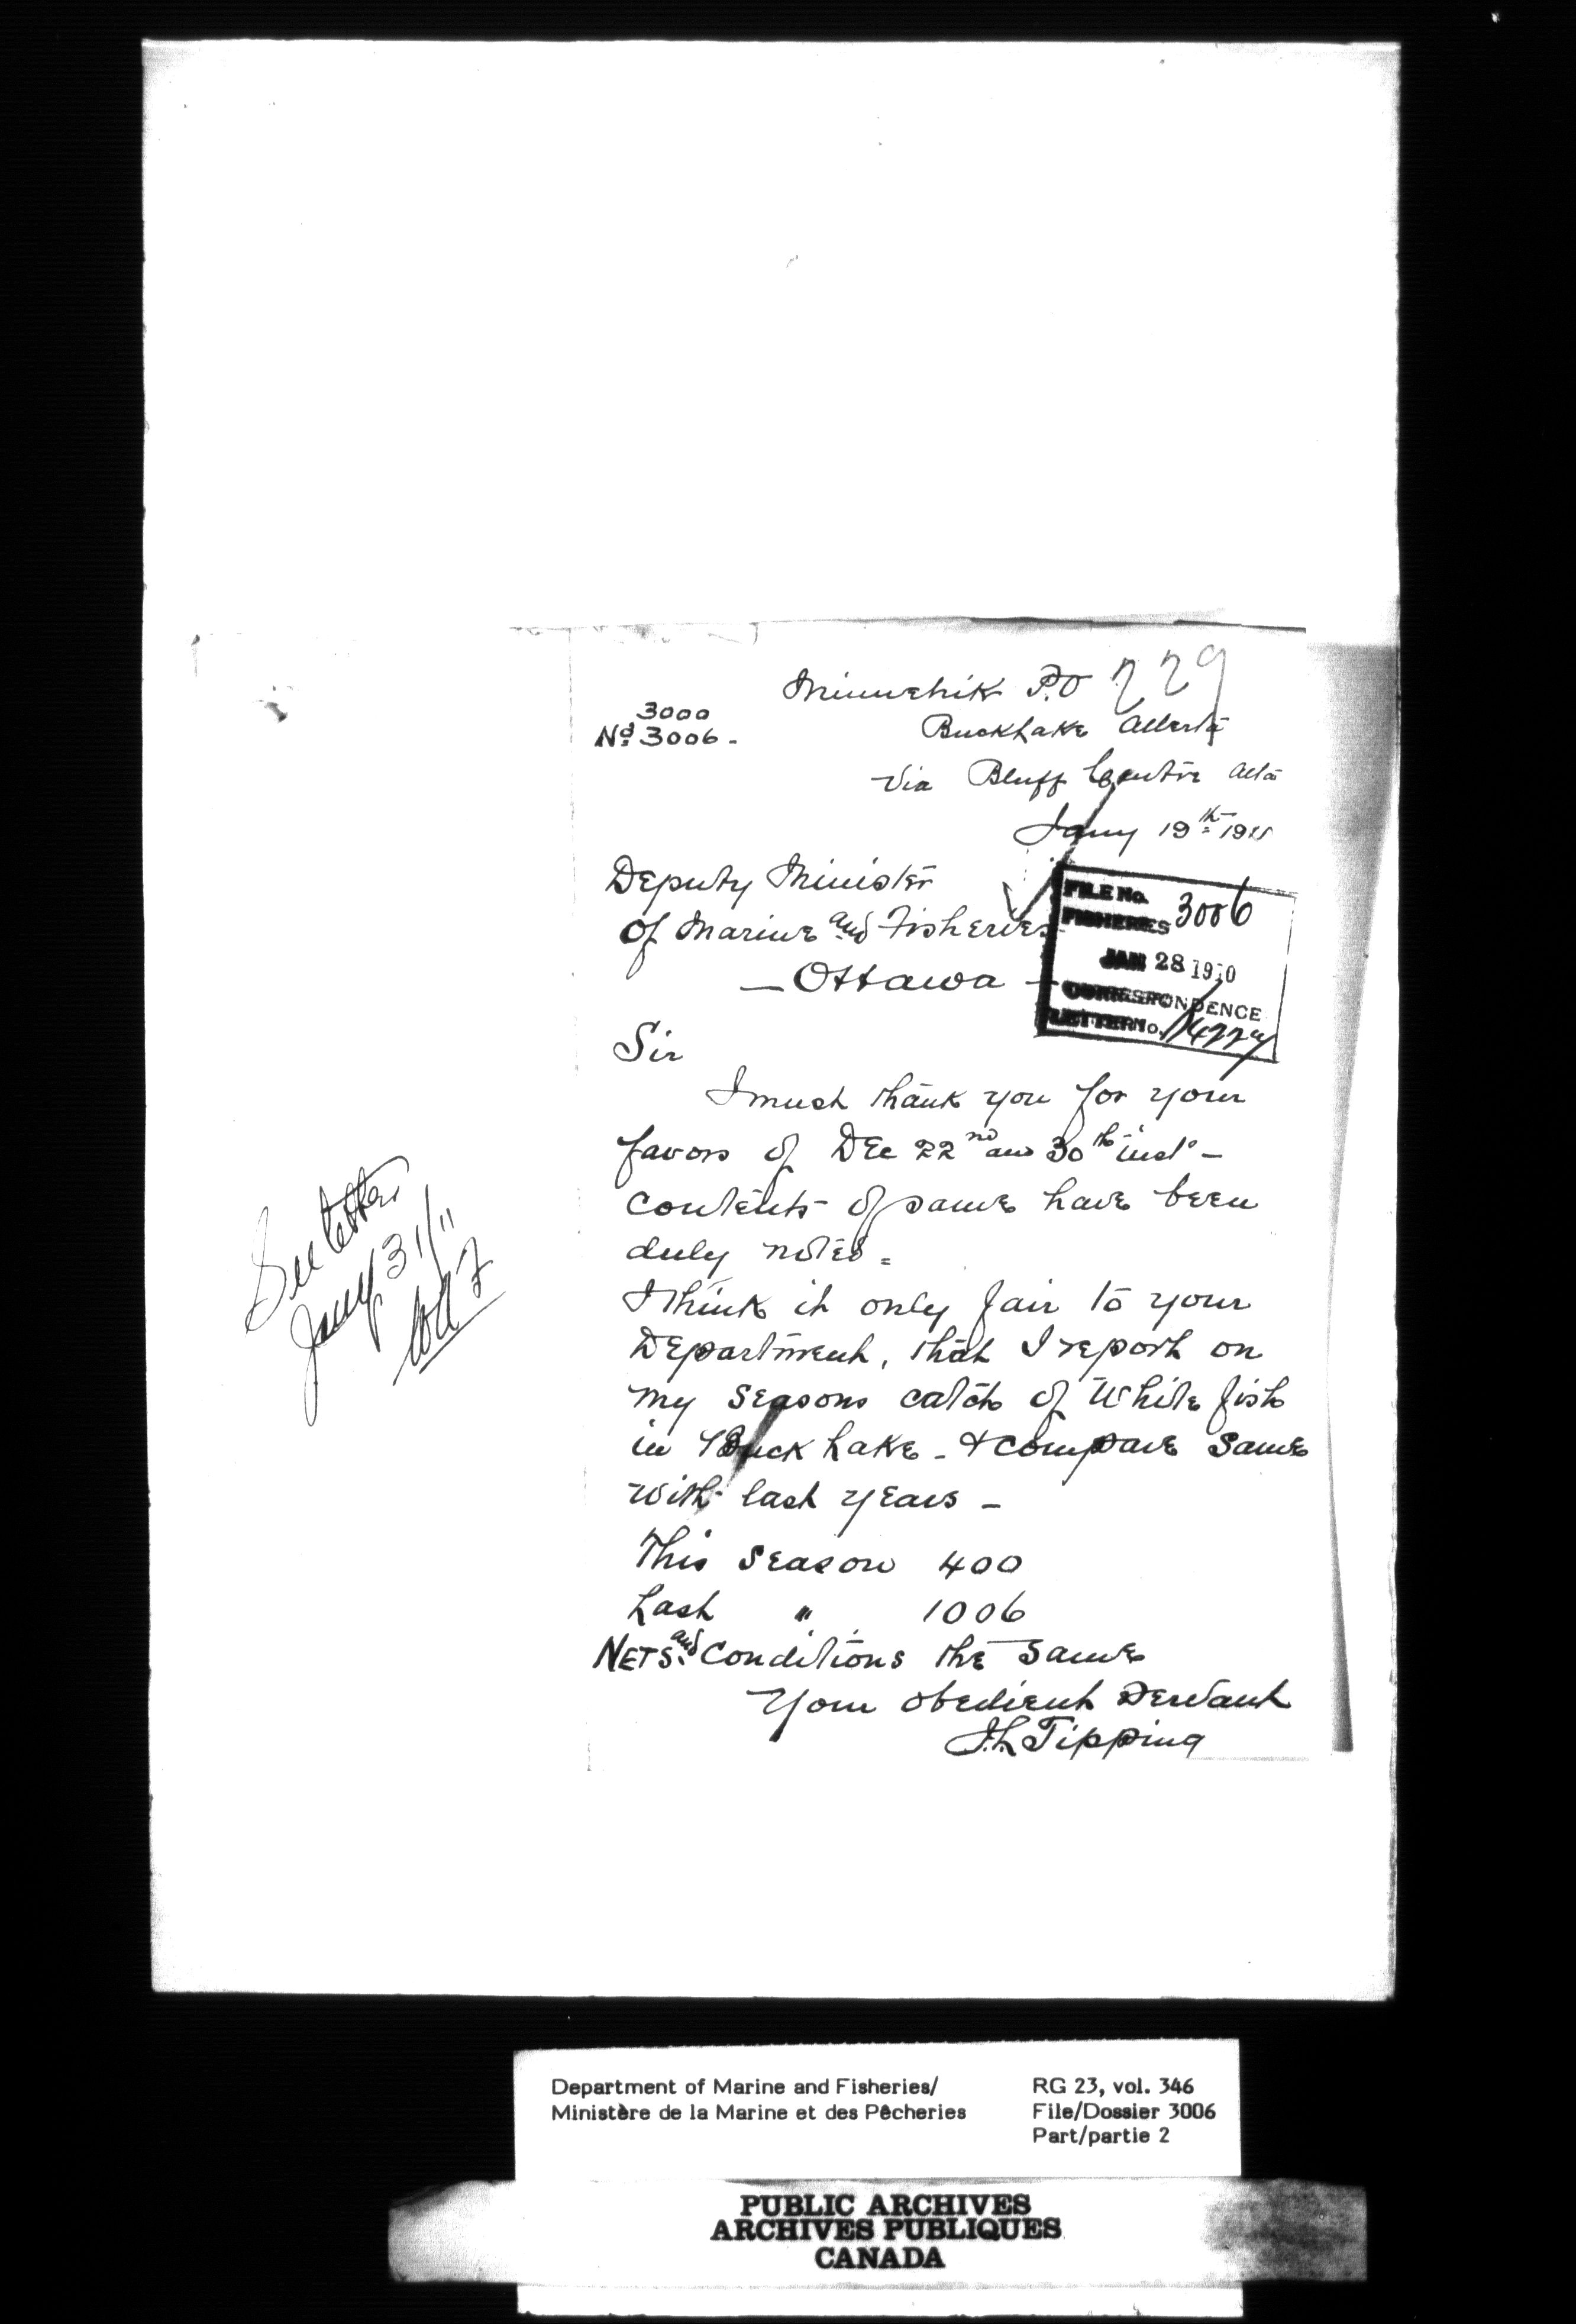 229
Minnehik P.O
3000
No 3006 -
Buck Lake Alberta
Via Bluff Centre Alta
Jany 19th 1911
Deputy Minister
of Marine and Fisheries
- Ottawa -
FILE No. 3006
FISHERIES
JAN 28 1910
CORRESPONDENCE
LETTER No.
Sir
I much thank you for your
favors of Dec 22nd and 30th inst -
contents of same have been
duly noted =
I think it only fair to your
Department, that I report on
my seasons catch of White fish
in Buck Lake - & compare same
with last years -
This season 400
Last " 1006
NETS and Conditions the same
Your obedient servant
J.L Tipping
See letter
Jany 31/11
Department of Marine and Fisheries/
Ministère de la Marine et des Pêcheries
RG 23, vol. 346
File/Dossier 3006
Part/partie 2
PUBLIC ARCHIVES
ARCHIVES PUBLIQUES
CANADA